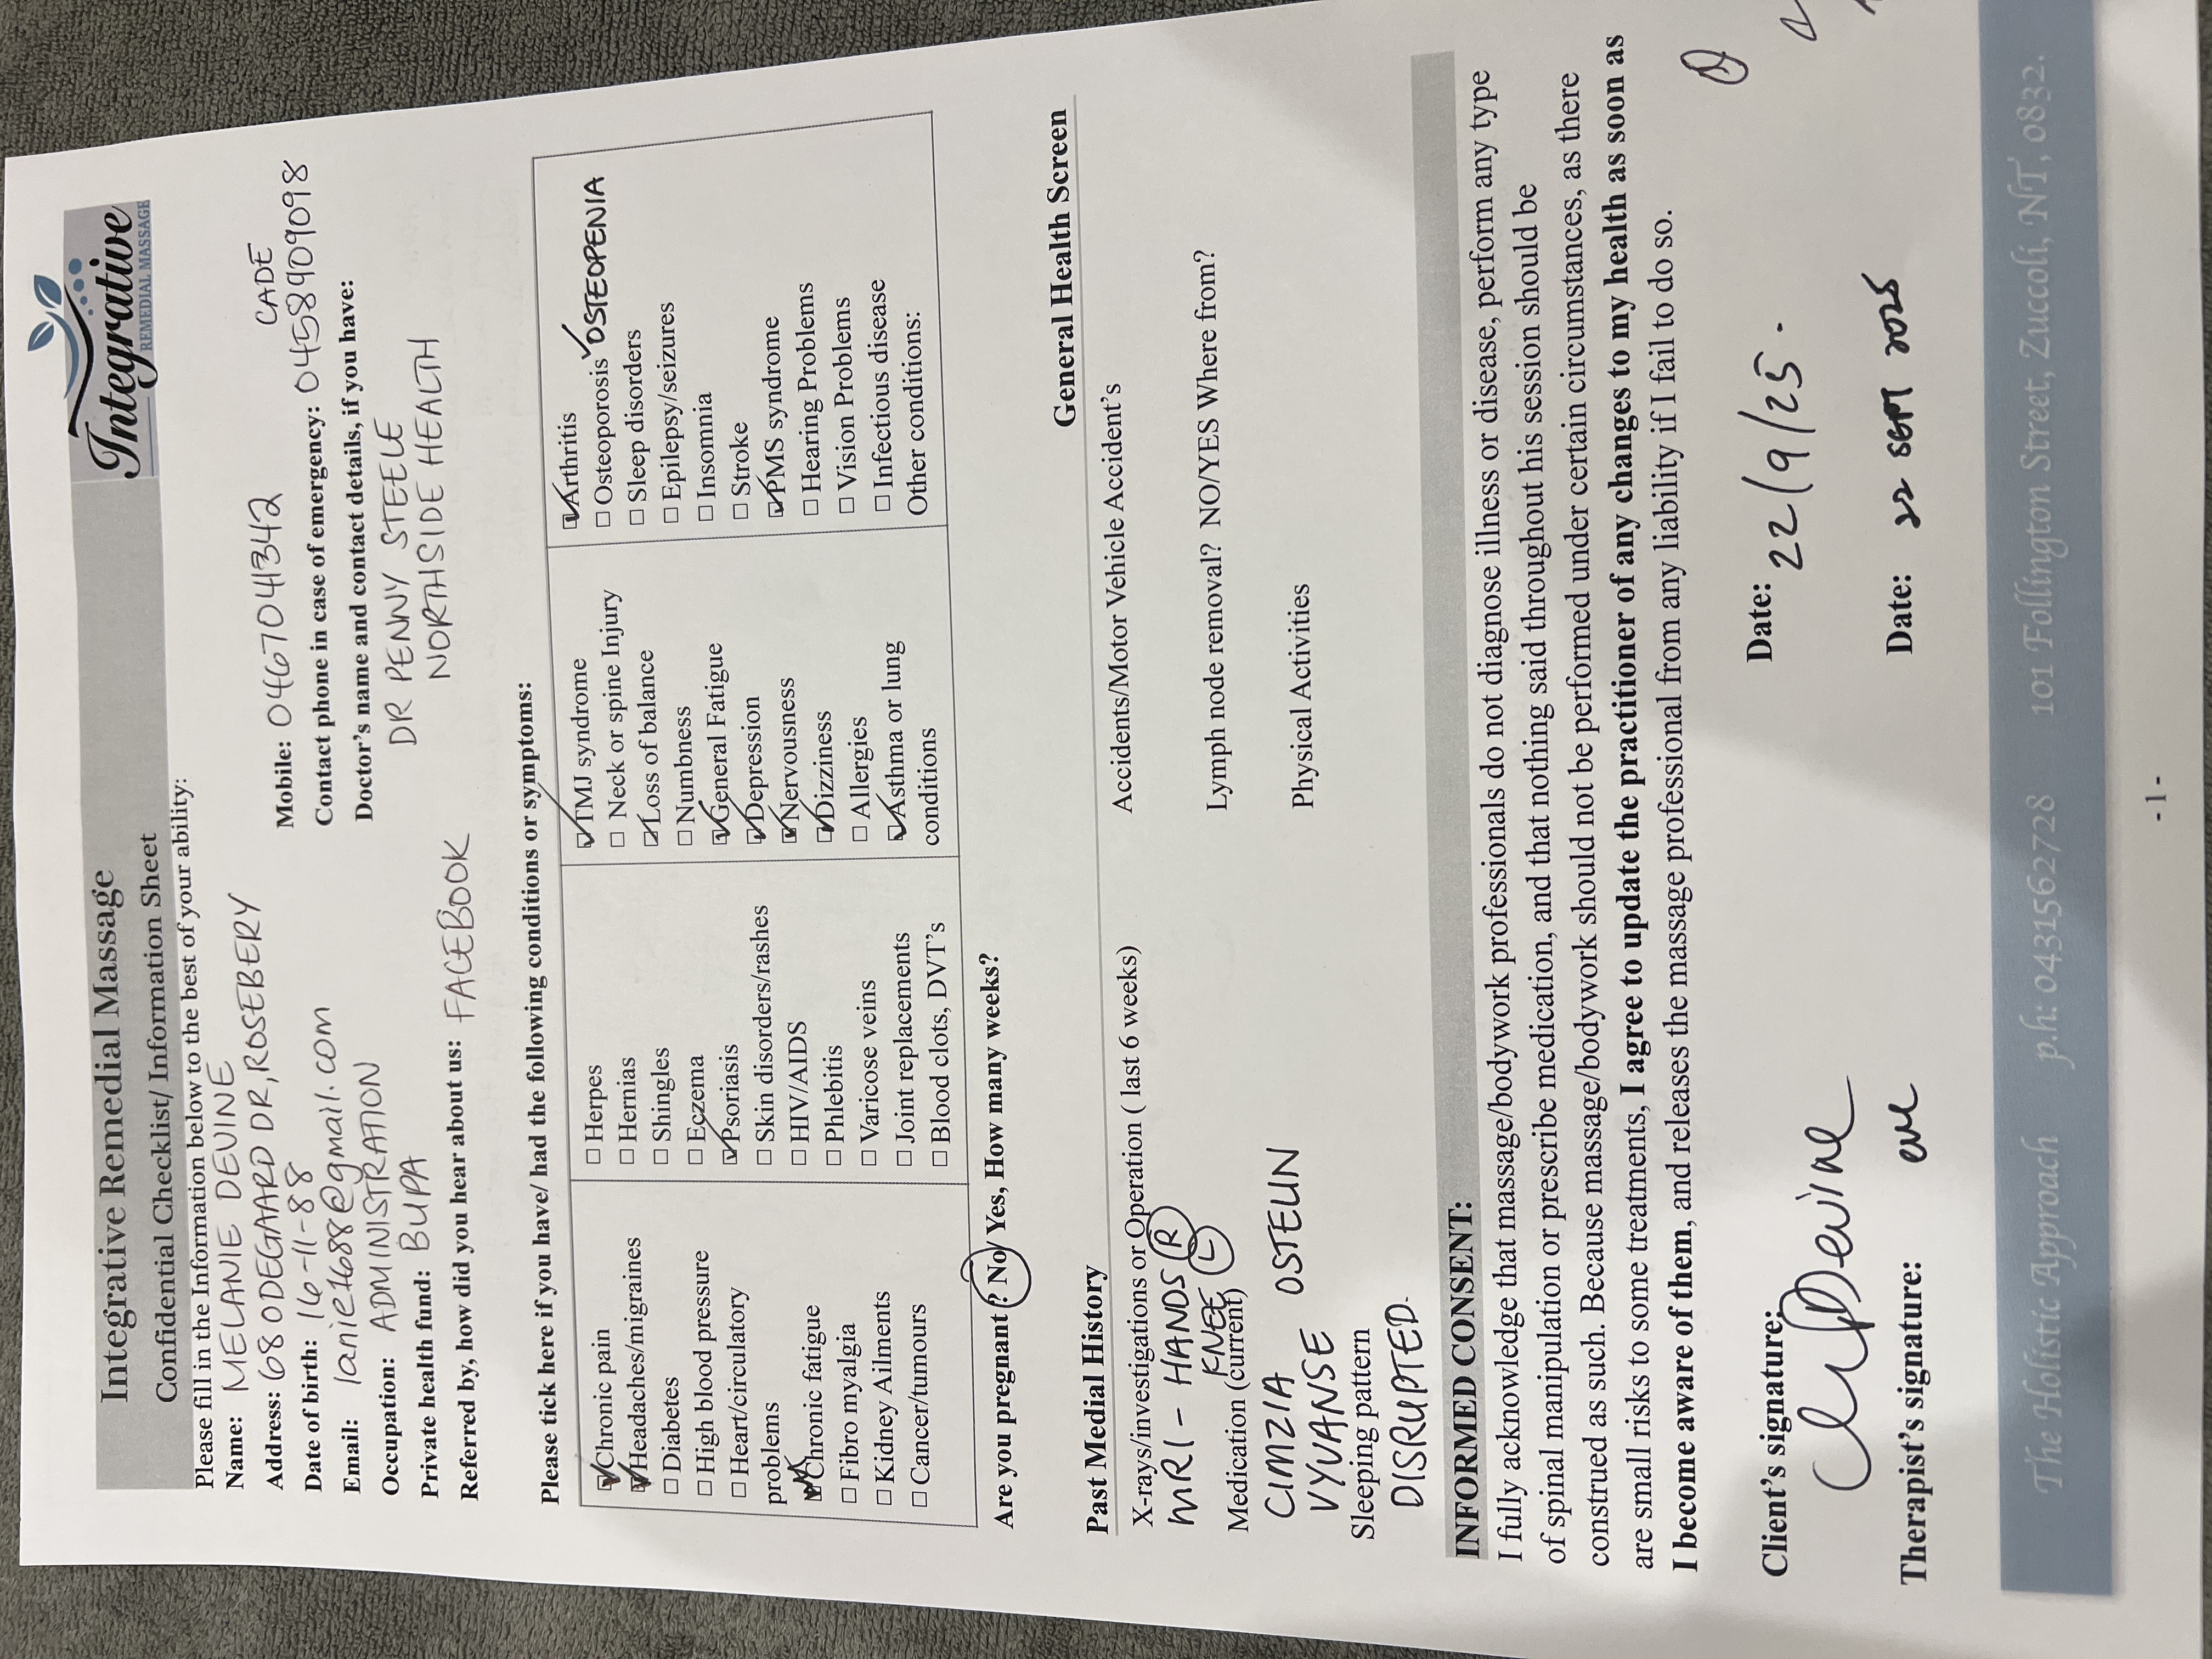 Integrative Remedial Massage
Confidential Checklist/ Information Sheet
Integrative
REMEDIAL MASSAGE
Please fill in the Information below to the best of your ability:
Name: MELANIE DEVINE
Address: 68 ODEGAARD DR, ROSEBERY
Date of birth: 16-11-88
Email: lanie1688@gmail.com
Occupation: ADMINISTRATION
Private health fund: BUPA
Referred by, how did you hear about us: FACEBOOK
Mobile: 0467041342
CADE
Contact phone in case of emergency: 0458909098
Doctor's name and contact details, if you have:
DR PENNY STEELE
NORTHSIDE HEALTH
Please tick here if you have/ had the following conditions or symptoms:
☑ Chronic pain
☑ Headaches/migraines
☐ Diabetes
☐ High blood pressure
☐ Heart/circulatory
problems
☑ Chronic fatigue
☐ Fibro myalgia
☐ Kidney Ailments
☐ Cancer/tumours
☐ Herpes
☐ Hernias
☐ Shingles
☐ Eczema
☑ Psoriasis
☐ Skin disorders/rashes
☐ HIV/AIDS
☐ Phlebitis
☐ Varicose veins
☐ Joint replacements
☐ Blood clots, DVT's
☑ TMJ syndrome
☐ Neck or spine Injury
☑ Loss of balance
☐ Numbness
☑ General Fatigue
☑ Depression
☑ Nervousness
☑ Dizziness
☐ Allergies
☑ Asthma or lung
conditions
☑ Arthritis
☐ Osteoporosis ✓ OSTEOPENIA
☐ Sleep disorders
☐ Epilepsy/seizures
☐ Insomnia
☐ Stroke
☑ PMS syndrome
☐ Hearing Problems
☐ Vision Problems
☐ Infectious disease
Other conditions:
Are you pregnant ? No/ Yes, How many weeks?
General Health Screen
Past Medial History
X-rays/investigations or Operation ( last 6 weeks)
MRI - HANDS R
KNEE L
Medication (current)
CIMZIA OSTELIN
VYVANSE
Sleeping pattern
DISRUPTED.
Accidents/Motor Vehicle Accident's
Lymph node removal? NO/YES Where from?
Physical Activities
INFORMED CONSENT:
I fully acknowledge that massage/bodywork professionals do not diagnose illness or disease, perform any type
of spinal manipulation or prescribe medication, and that nothing said throughout his session should be
construed as such. Because massage/bodywork should not be performed under certain circumstances, as there
are small risks to some treatments, I agree to update the practitioner of any changes to my health as soon as
I become aware of them, and releases the massage professional from any liability if I fail to do so.
Client's signature: Devine
Date: 22/9/25.
Therapist's signature:
Date: 22 SEPT 2025
The Holistic Approach p.h: 0431562728 101 Follington Street, Zuccoli, NT, 0832.
- 1 -